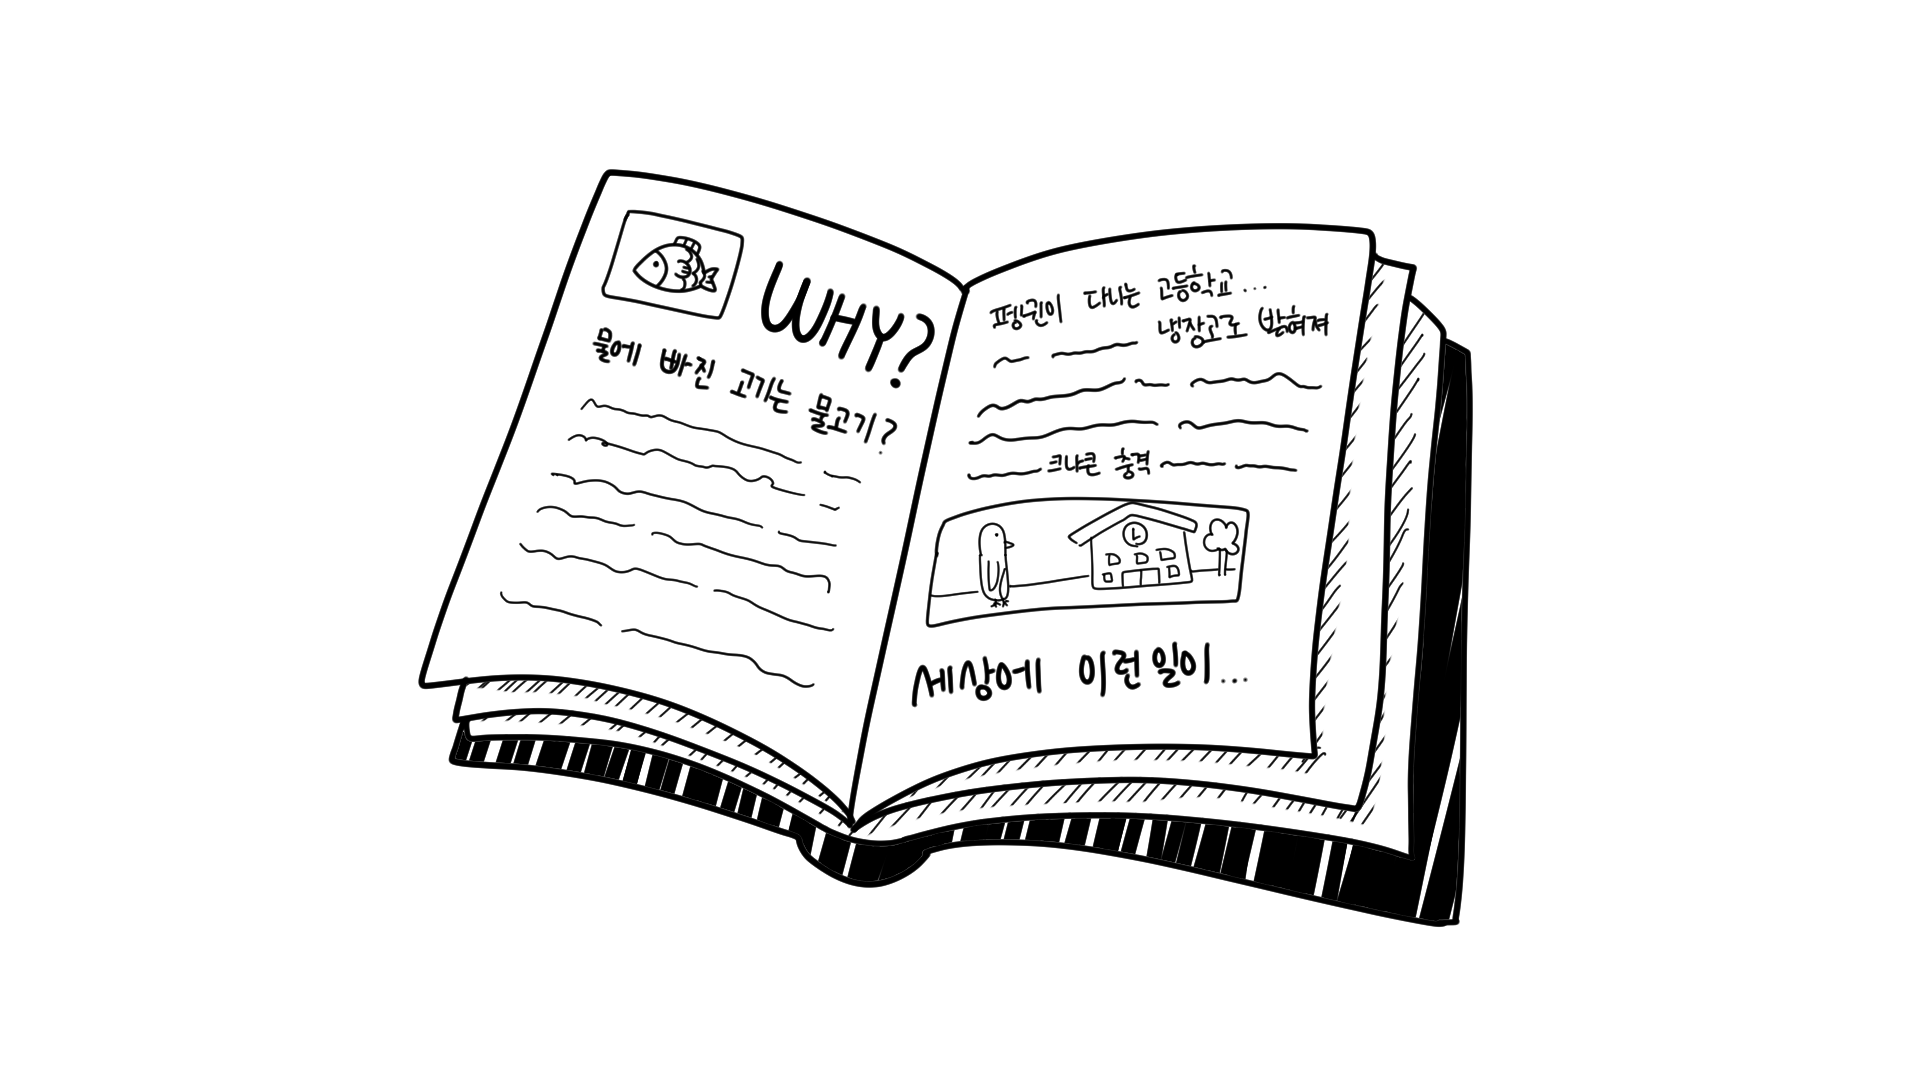 WHY?
물에 빠진 고기는 물고기?
펭귄이 다니는 고등학교...
냉장고로 밝혀져
크나큰 충격
세상에 이런 일이...